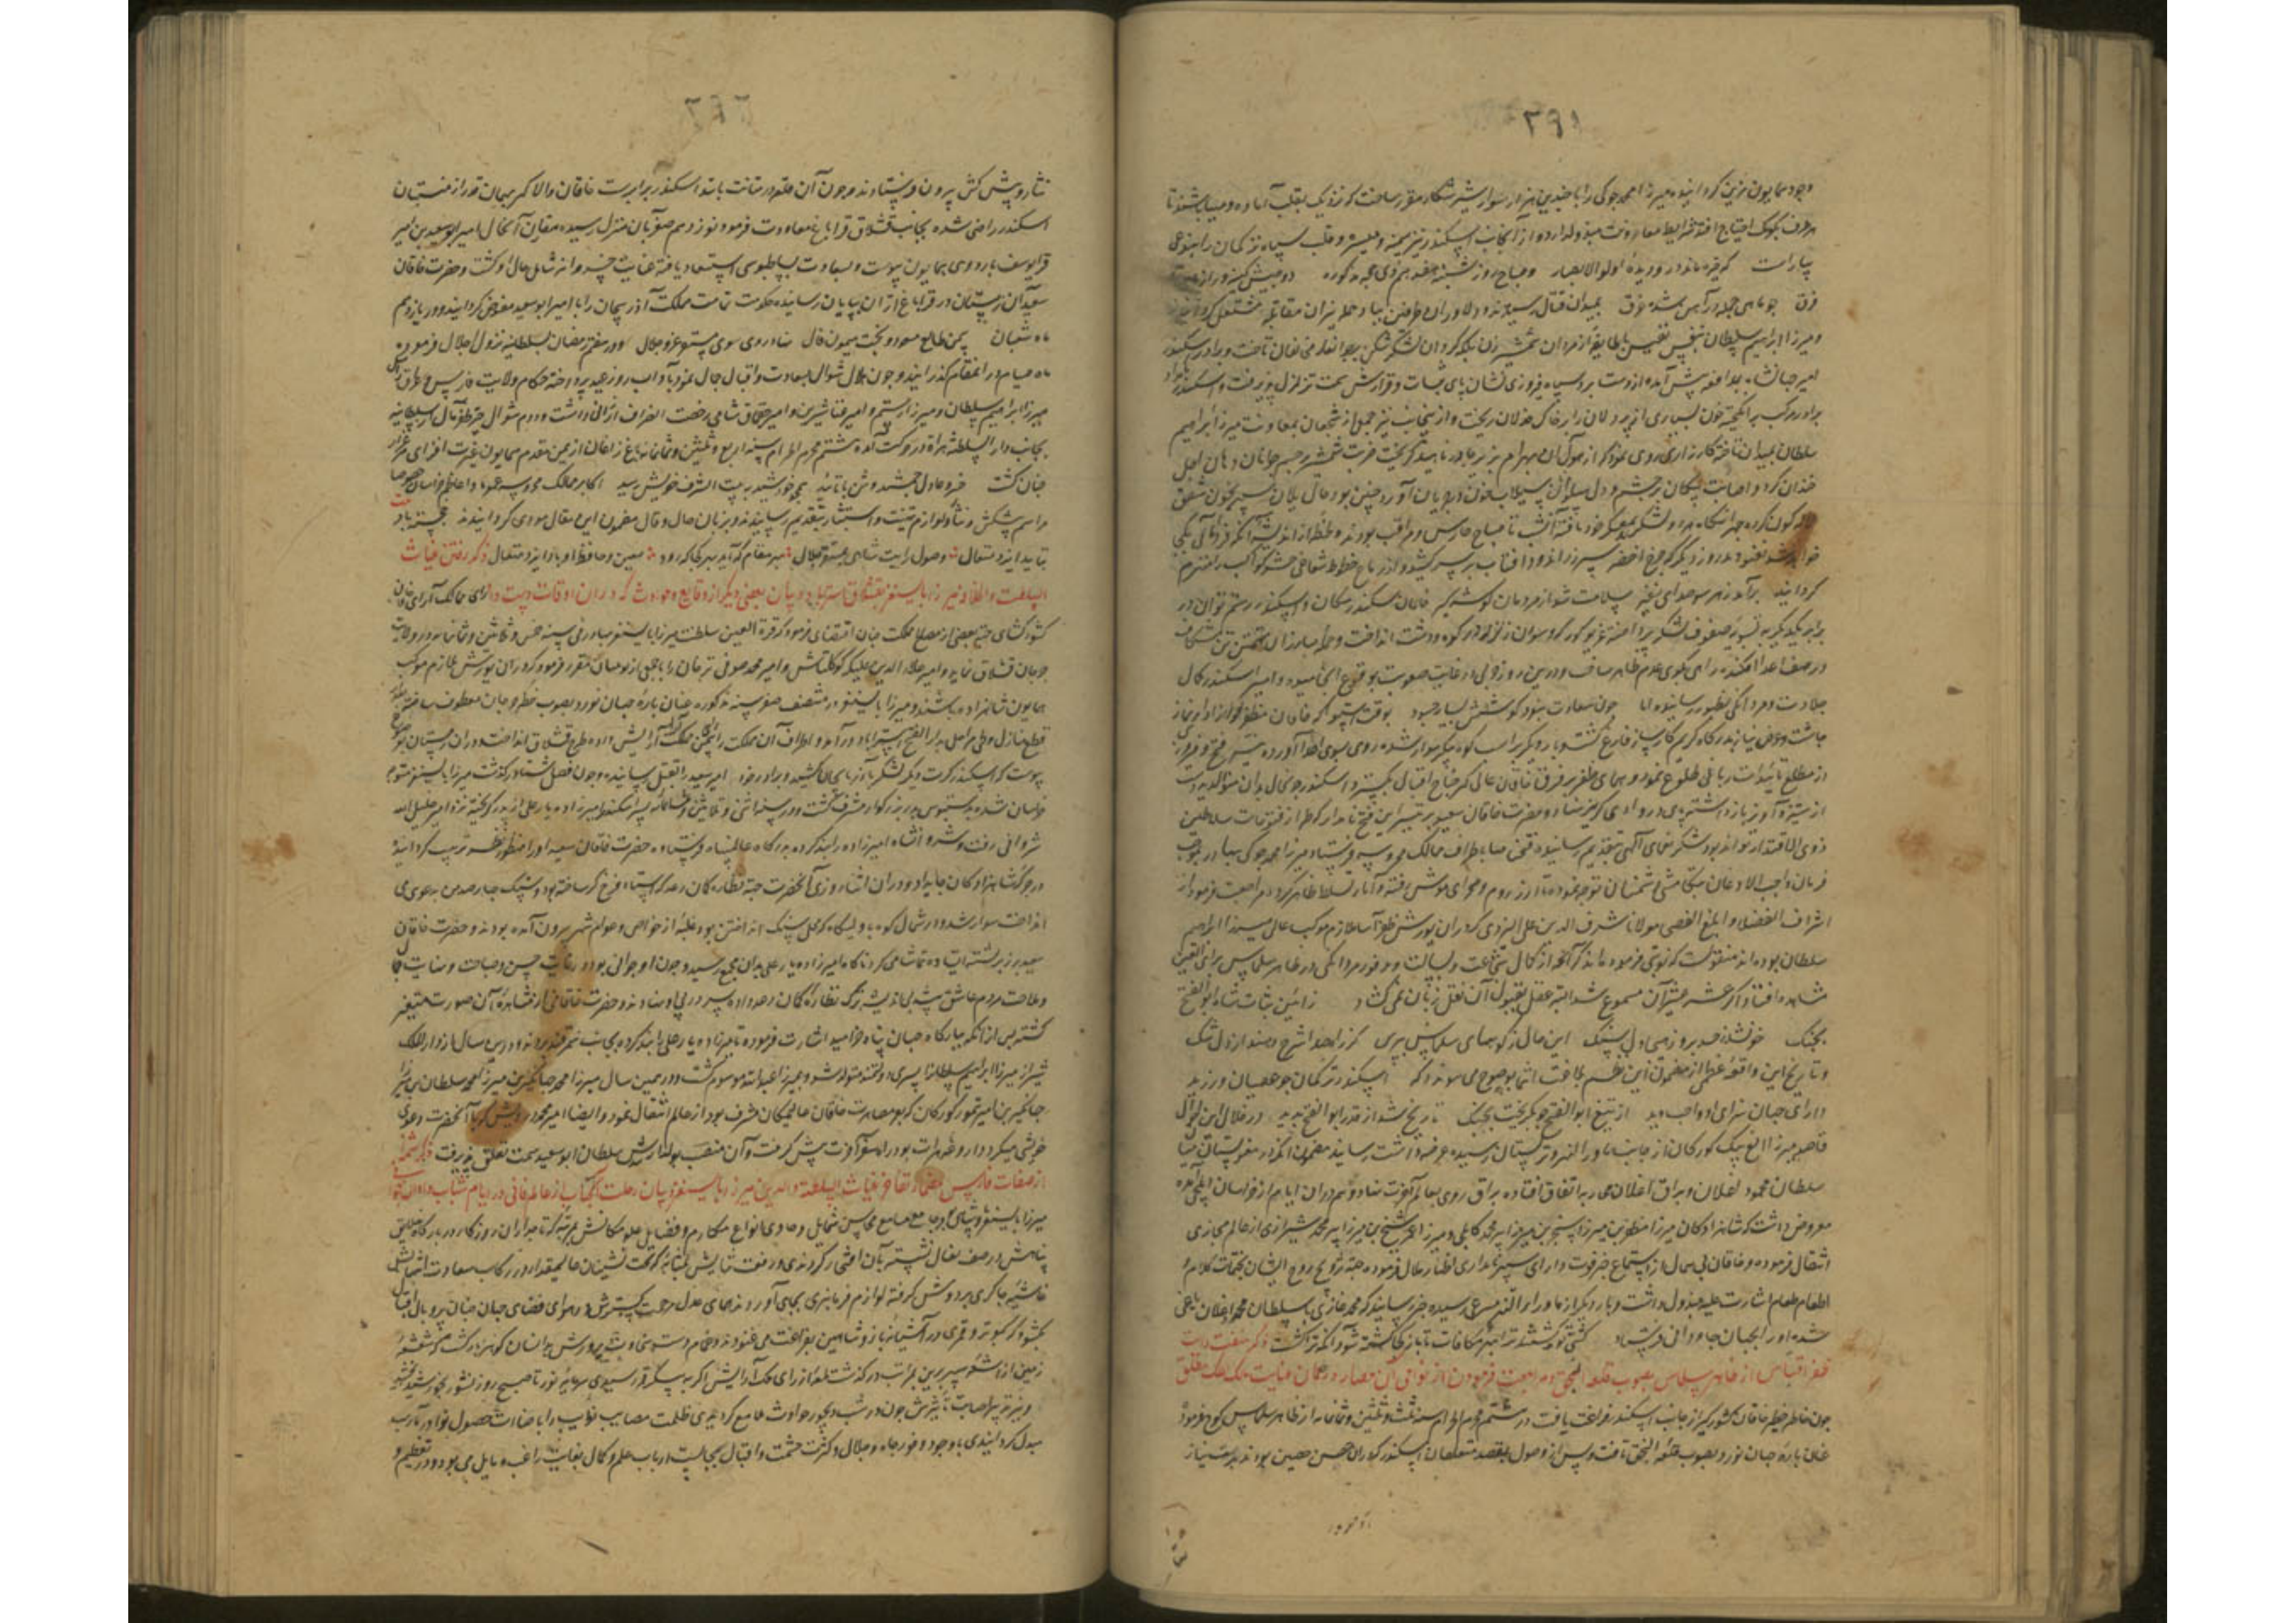 ۳۹۱
وجود همایون مزین گردانیده میرزا محمد جوکی را با چندین هزار سوار شیر شکار مقرر ساخت که نزدیک بقلب آماده و مهیا باشند تا
هر طرف بکومک احتیاج افتد شرایط معاونت مبذول دارد و از آنجانب اسکندر نیز میمنه و میسره و قلب سپاه ترکمان را بنوعی
بیاراست که خیره ماند در و دیدهٔ اولو الابصار و صباح روز شنبه هفدهم ذی حجه مذکوره دو جیش کینه ور از
فرق چو ماهی جمله در آهن شده غرق بمیدان قتال رسیدند و دلاوران طرفین بباد حمله نیران مقاتله مشتعل گردانیدند
و میرزا ابراهیم سلطان بنفس نفیس با طایفهٔ از مردان شمشیر زن بلکه گردان لشکر شکن بر جوانغار مخالفان تاخت و برادر اسکندر
امیر جهانشاه بمدافعه پیش آمده از دست برد سپاه فیروزی نشان پای ثبات و قرارش سمت تزلزل پذیرفت و اسکندر
برادر مرکب برانگیخته خون بسیاری از پردلان را بر خاک هلاک ریخت و از ینجانب نیز جمعی از شجعان بمعاونت میرزا ابراهیم
سلطان بمیدان تاخته کارزاری روی نمود که از هول آن بهرام بزیر چادر ناهید گریخت ضربت شمشیر بر جسم جوانان دهان لعل
خندان کرد و اصابت پیکان بر چشم و دل پهلوانان سیلاب خون در جریان آورد چنین بود حال یلان تا سپهر بخون شفق
کون کرده چهر آنگاه هر دو لشکر بمعسکر خود بافته آنشب تا صباح حارس و مراقب بودند و لحظهٔ از اندیشه آنکه فردا
خواب نغنودند روز دیگر که چرخ اخضر سپر زر اندود آفتاب بر سر کشید و از رماح خطوط شعاعی حشر کواکب را منهزم
گردانید برآمد زهر سو صدای نفیر سلامت شد از مردمان گوشه گیر خاقان سکندر مکان و اسکندر رستم توان در
برابر یکدیگر به تسویه صفوف لشکر پرداختند غریو کور که و سوران زلزله در کوه و دشت انداخت و حمله مبارزان
در صف اعدا افکنده راهی بکوی عدم ظاهر ساخت و درین روز حربی در غایت صعوبت بوقوع انجامید و امیر اسکندر کمال
جلادت و مردانگی بظهور رسانیده اما چون سعادت نبود کوشش بسیار چه سود بوقت استوا که خاقان منظفر لوا از ادای نماز
چاشت و عرض نیاز بدرگاه کریم کارساز فارغ گشت و بار دیگر بر اسب کوه پیکر سوار شده روی بسوی اعدا آورده نسیم فتح و فیروزی
از مطلع تائیدات ربانی طلوع نمود و همای ظفر بر فرق خاقان عالی گهر جناح اقبال بگسترد و اسکندر چو مجال بدان منوال دید دست
از ستیز و آویز باز داشته پای در وادی گریز نهاد و حضرت خاقان سعید بتیسیر این فتح نامدار که طراز فتوحات سلاطین
ذوی الاقتدار تواند بود شکر نعمای الهی بتقدیم رسانیده فتحنامها باطراف ممالک محروسه فرستاد و میرزا محمد جوکی بهادر بموجب
فرمان واجب الاذعان بتکامشی دشمنان توجه نموده تا ارزروم و صحرای موش رفته و آثار تسلط ظاهر کرده مراجعت فرمود از
اشراف الفضلا و ابلغ الفصحا مولانا شرف الدین علی الیزدی که در ان یورش ظفر آسا ملازم موکب عالی میرزا ابراهیم
سلطان بوده اند منقولست که نوبتی فرموده اند که آنچه از کمال شجاعت و بسالت و وفور مردانگی در ظاهر سلماس برای العین
مشاهده افتاد اگر عشر عشیر آن مسموع شد البته عقل بقبول آن نقل زبان نمی گشاد ز آئین ثبات شاه ابو الفتح
بجنگ خونشد حد بر و زمین دل سنگ این حال ز کوههای سلماس بپرس کز راه صدا شرح دهند از دل سنگ
و تاریخ این واقعهٔ عظمی از مضمون این نظم بلاغت انتما بوضوح می پیوندد که اسکندر ترکمان چو عصیان ورزید
دارای جهان سزای او واجب دید از تیغ ابو الفتح چو بگریخت بجنگ تاریخ شد از قدر ابو الفتح پدید در خلال این احوال
قاصد میرزا الغ بیک کورکان از جانب ماوراء النهر و ترکستان رسیده عرضه داشت رسانید مضمون آنکه در مغولستان میان
سلطان محمود اغلان و براق اغلان محاربه اتفاق افتاده براق روی بعالم آخرت نهاد و هم در ان ایام از خراسان ایلچی آمده
معروض داشت که شاهزادگان میرزا مظفر بن میرزا سنجر بن میرزا پیر محمد کابلی و میرزا عمر شیخ بن میرزا پیر محمد شیرازی از عالم مجازی
انتقال فرموده و خاقان بی همال از استماع خبر فوت دارای سپهر نامداری اظهار ملال فرموده جهة ترویح روح ایشان بختمات کلام و
اطعام طعام اشارت علیه مبذول داشت و بار دیگر از ماوراء النهر مسرعی رسیده خبر رسانید که محمد غازی سلطان محمد اغلان باغی
شده او را بجهان جاودانی فرستاد کشتی که کشتند ترا بهر مکافات تا باز کجا کشته شود آنکه ترا کشت ذکر نهضت رایت
ظفر اقتباس از ظاهر سلماس بصوب قلعه النجق و مراجعت فرمودن از نواحی آن حصار در ضمان عنایت ملک ملک مطلق
چون خاطر خطیر خاقان کشور گیر از جانب اسکندر فراغت یافت در هشتم محرم الحرام سنه ثلث و ثلثین و ثمانمایه از ظاهر سلماس کوچ فرمود
عنان بارهٔ جهان نورد بصوب قلعه النجق تافت و پس از وصول بمقصد متعلقان اسکندر که در ان حصن حصین بودند

۳۹۲
نثار و پیش کش بیرون فرستادند و چون آن قلعه در متانت با سد اسکندر برابرست خاقان والا گهر بهمان قدر از منتسبان
اسکندر راضی شده بجانب قشلاق قراباغ معاودت فرمود نوزدهم صفر بان منزل رسیده مقارن آنحال امیر ابو سعید بن امیر
قرا یوسف باردوی همایون پیوست و بسعادت بساطبوسی استسعاد یافته عنایت خسروانه شامل حال او گشت و حضرت خاقان
سعید آن زمستان در قراباغ اران بپایان رسانیده حکومت تمامت مملکت آذربیجان را با امیر ابو سعید مفوض گردانید و در یازدهم
ماه شعبان بیمن طالع مسعود و بخت میمون فال نهاد روی سوی مستقر عز و جلال و در هفتم رمضان بسلطانیه نزول اجلال فرموده
ماه صیام در انمقام گذرانید و چون هلال شوال بسعادت و اقبال جمال نمود بآداب روز عید پرداخته حکام ولایت فارس و عراق
میرزا ابراهیم سلطان و میرزا رستم و امیر غناشیرین و امیر چقماق شامی رخصت انصراف ارزانی داشت و دوم شوال ظفر مآل از سلطانیه
بجانب دار السلطنه هراة در حرکت آمده هشتم محرم الحرام سنه اربع و ثلثین و ثمانمایه باغ زاغان از یمن مقدم همایون غیرت افزای
جنان گشت خسرو عادل جمشید وش با تائید همچو خورشید به بیت الشرف خویش رسید اکابر ممالک محروسه عموما و اعاظم خراسان خصوصا
مراسم پیشکش و نثار و لوازم تهنیت و استبشار بتقدیم رسانیدند و بزبان حال و قال مضمون این مقال مودی گردانیدند خجسته باد
بتایید ایزد متعال وصول رایت شاهی بمستقر جلال بهر مقام که آید بهر کجا که رود معین و حافظ او باد ایزد متعال ذکر رفتن غیاث
السلطنت والدنیا میرزا بایسنغر بقشلاق استرآباد و بیان بعضی دیگر از وقایع و حوادث که در ان اوقات دست داد رای ممالک آرای خاقان
کشور گشای جهة بعضی از مصالح مملکت چنان اقتضای فرمود که قرة العین سلطنت میرزا بایسنغر بهادر فی سنه خمس و ثلاثین و ثمانمایه در ولایت
جرجان قشلاق نماید و امیر علاء الدین علیکه کوکلتاش و امیر محمد صوفی ترخان را با جمعی از نوئینان مقرر فرمود که در ان یورش ملازم موکب
همایون شاهزاده باشند و میرزا بایسنغر در منتصف صفر سنه مذکوره عنان بارهٔ جهان نورد بصوب خطه جرجان معطوف ساخته
قطع منازل و طی مراحل بدار الفتح استرآباد در آمد و اطراف آن مملکت را آرایش داده طرح قشلاق انداخت و در ان زمستان بوضوح
پیوست که اسکندر کرت دیگر لشکر بآذربایجان کشید و برادر خود امیر ابو سعید را بقتل رسانیده و چون فصل شتا در گذشت میرزا بایسنغر متوجه
خراسان شده بدستبوس پدر بزرگوار مشرف گشت و در سنه اثنی و ثلاثین و ثمانمائه پسر اسکندر امیرزاده یار علی از پدر گریخته نزد امیر خلیل الله
شروانی رفت و شروانشاه امیرزاده را بند کرده بدرگاه عالمپناه فرستاد و حضرت خاقان سعید او را منظور نظر تربیت گردانید
در جرگه شاهزادگان جا داد و در ان اثنا روزی آنحضرت جهة نظاره کان رعد که استاد فرخ که ساخته بود و سنگ چهار صد من به دعوی می
انداخت سوار شد و در شمال کوه با ولیکاه که محل سنگ انداختن بود و غلبه از خواص و عوام شهر بیرون آمده بودند و حضرت خاقان
سعید بر زبر پشته ایستاده تماشا می کرد ناگاه امیرزاده یار علی بدان مجمع رسید و چون او جوانی بود در غایت حسن و صباحت و نهایت
و ملاحت مردم عاشق پیشه بی اندیشه ترک نظاره کان رعد داده سر در پی او نهادند و حضرت خاقانی از مشاهده آن صورت متغیر
گشته پس از آنکه ببارگاه جهان پناه خرامید اشارت فرموده تا میرزاده یار علی را بند کرده بجانب سمرقند بردند و درین سال از دار الملک
شیراز میرزا ابراهیم سلطانرا پسری دولتمند متولد شد و بمیرزا عبدالله موسوم گشت و در همین سال میرزا محمد جهانگیر بن میرزا محمد سلطان بن میرزا
جهانگیر بن امیر تیمور گورکان که بمصاهرت خاقان عالیمکان مشرف بود از عالم انتقال نمود و ایضا امیر محمد درویش که با آنحضرت دعوی
خویشی میکرد و داروغه هرات بود راه سفر آخرت پیش گرفت و آن منصب بولد ارشدش سلطان ابو سعید سمت تعلق پذیرفت ذکر شمه
از صفات فارس مضمار تفاخر غیاث السلطنة والدین میرزا بایسنغر و بیان رحلت آنجناب از عالم فانی در ایام شباب و اوان جوانی
میرزا بایسنغر پادشاهی بود جامع جوامع محاسن شمایل و حاوی انواع مکارم و فضایل علو مکانش بمرتبهٔ که تاجداران روزگار در بارگاه خلایق
پناهش در صف نعال نشسته بآن افتخار کردندی و رفعت شانش بمثابهٔ که تخت نشینان عالیمقدار در رکاب سعادت انتمایش
غاشیه چاکری بر دوش گرفته لوازم فرمانبری بجای آوردندی همای عدل مرحمت گسترش در هوای فضای جهان چنان پر و بال اقبال
بکشود که کبوتر و قمری در آشیانه باز و شاهین بفراغت می غنودند و غمام دست سخاوت پرورش بدانسان گوهر بار گشت که شعشعه
زمینی از اشعه سپهر برین بمراتب در گذشت لمعهٔ از رای ملک آرایش اگر به پیکر قمر رسیدی سرمایهٔ نور تا صبح روز نشور
و پرتو تدبیر اصابت تاثیرش چون در شب دیجور حوادث طالع گردیدی ظلمت مصایب نوایب را باضاءت حصول نوادر مآرب
مبدل گردانیدی با وجود وفور جاه و جلال و کثرت حشمت و اقبال بمجالست ارباب علم و کمال بغایت راغب و مایل می بود و در تعظیم و